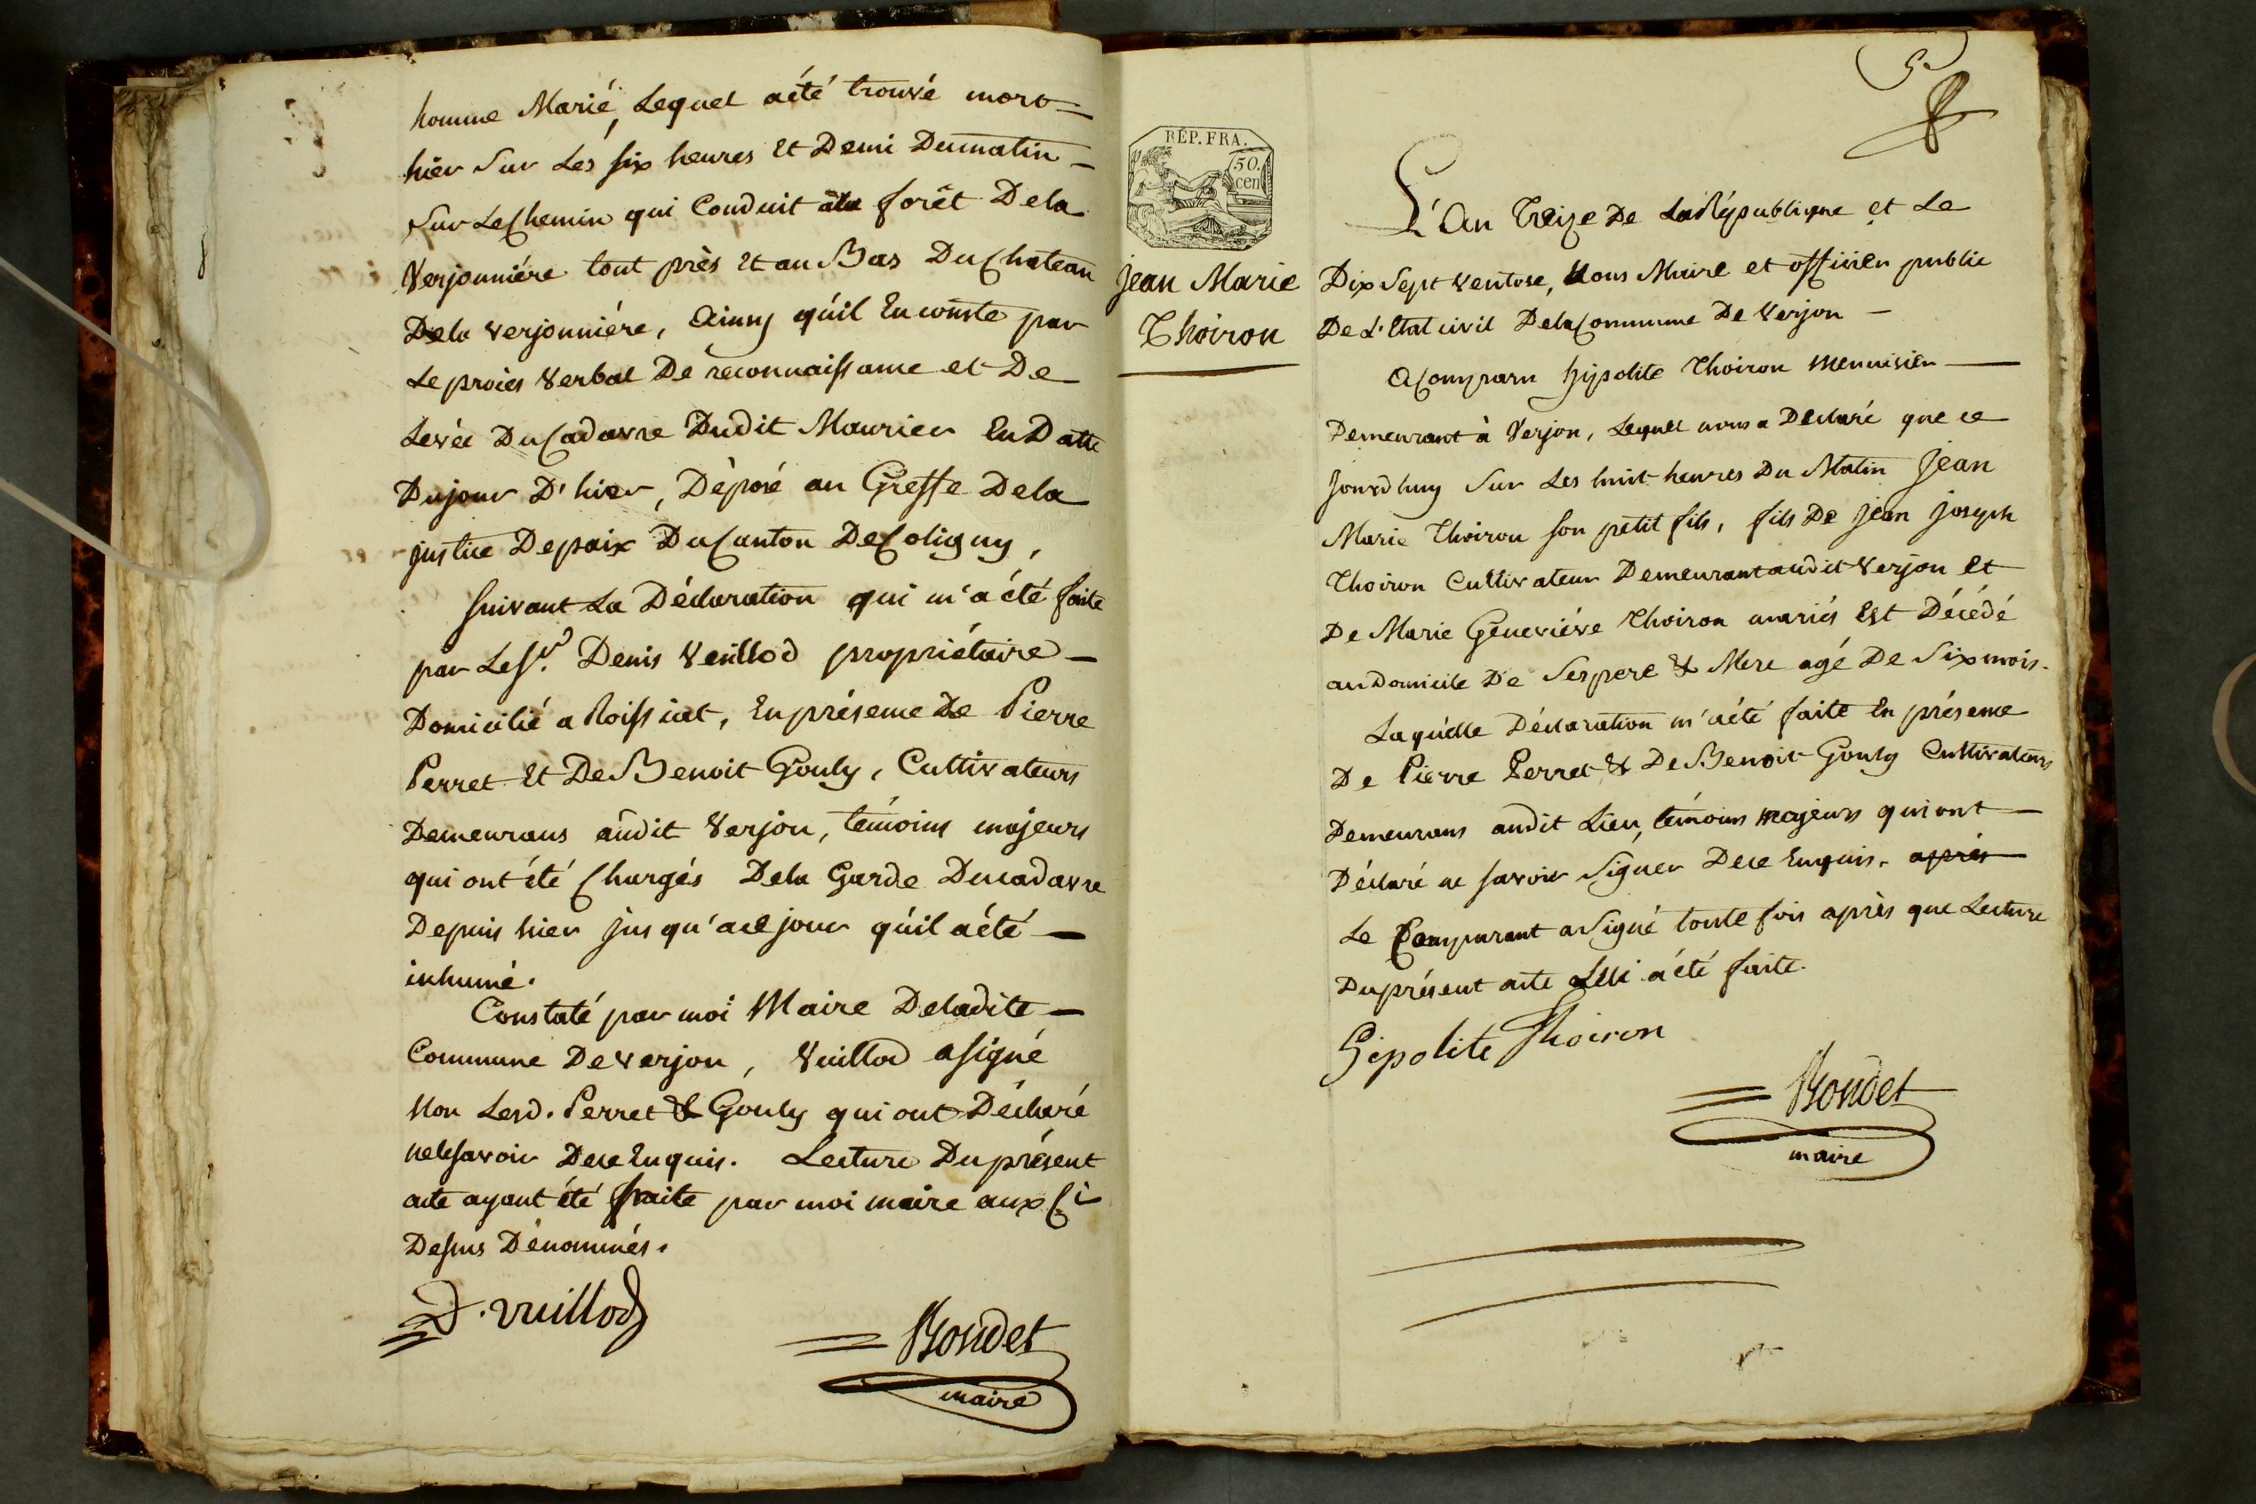 homme Marié, Lequel a été trouvé mort
hier Sur Les six heures Et Demi Dumatin
Sur LeChemin qui Conduit ala forêt Dela
Verjonniére tout près Et au Bas DuChateau
Dela verjonniére, Ainsy qu'il En conste par
Le procès verbal De reconnaissance et De
Levée DuCadavre Dudit Maurier En Datte
Dujour D'hier, Déposé au Greffe Dela
justice Depaix DuCanton DeColigny,
suivant La Déclaration qui m'a été faite
par Le Sr. Denis Veuillod propriétaire
Domicilié a Roissiat, En présence De Pierre
Perret Et De Benoit Gouly, Cultivateurs
Demeurans audit Verjon, témoins majeurs
qui ont été Chargés Dela Garde Ducadavre
Depuis hier jusqu'ace jour qu'il a été
inhumé.
Constaté par moi Maire Deladite
Commune De Verjon, Vuillod a signé
Non Lesd. Perret & Gouly qui ont Déclaré
nelesavoir Dece Enquis. Lecture Duprésent
acte ayant été faite par moi maire aux Ci
Dessus Dénommés.
D. vuillod
Bondet
maire
5
RÉP. FRA.
50.
cen
Jean Marie
Thoiron
L'An Treize De LaRépublique et Le
Dix Sept ventose, Nous Maire et officier public
De L'Etat civil DelaCommune De Verjon
AComparu hypolite Thoiron Menuisier
Demeurant à Verjon, Lequel nous a Déclaré que ce
Jourdhuy Sur Les huit heures Du Matin Jean
Marie Thoiron son petit fils, fils De Jean Joseph
Thoiron Cultivateur Demeurant audit Verjon Et
De Marie Geneviéve Thoiron mariés Est Décédé
au Domicile De Ses pere & Mere agé De Six mois.
Laquélle Déclaration m'a été faite En présence
De Pierre Perret & De Benoit Gouly Cultivateurs
Demeurans audit Lieu, témoins majeurs qui ont
Déclaré ne savoir Signer Dece Enquis. après
Le Comparant a Signé toute fois après que Lecture
Duprésent acte Lui a été faite.
Gipolite Thoiron
Bondet
maire